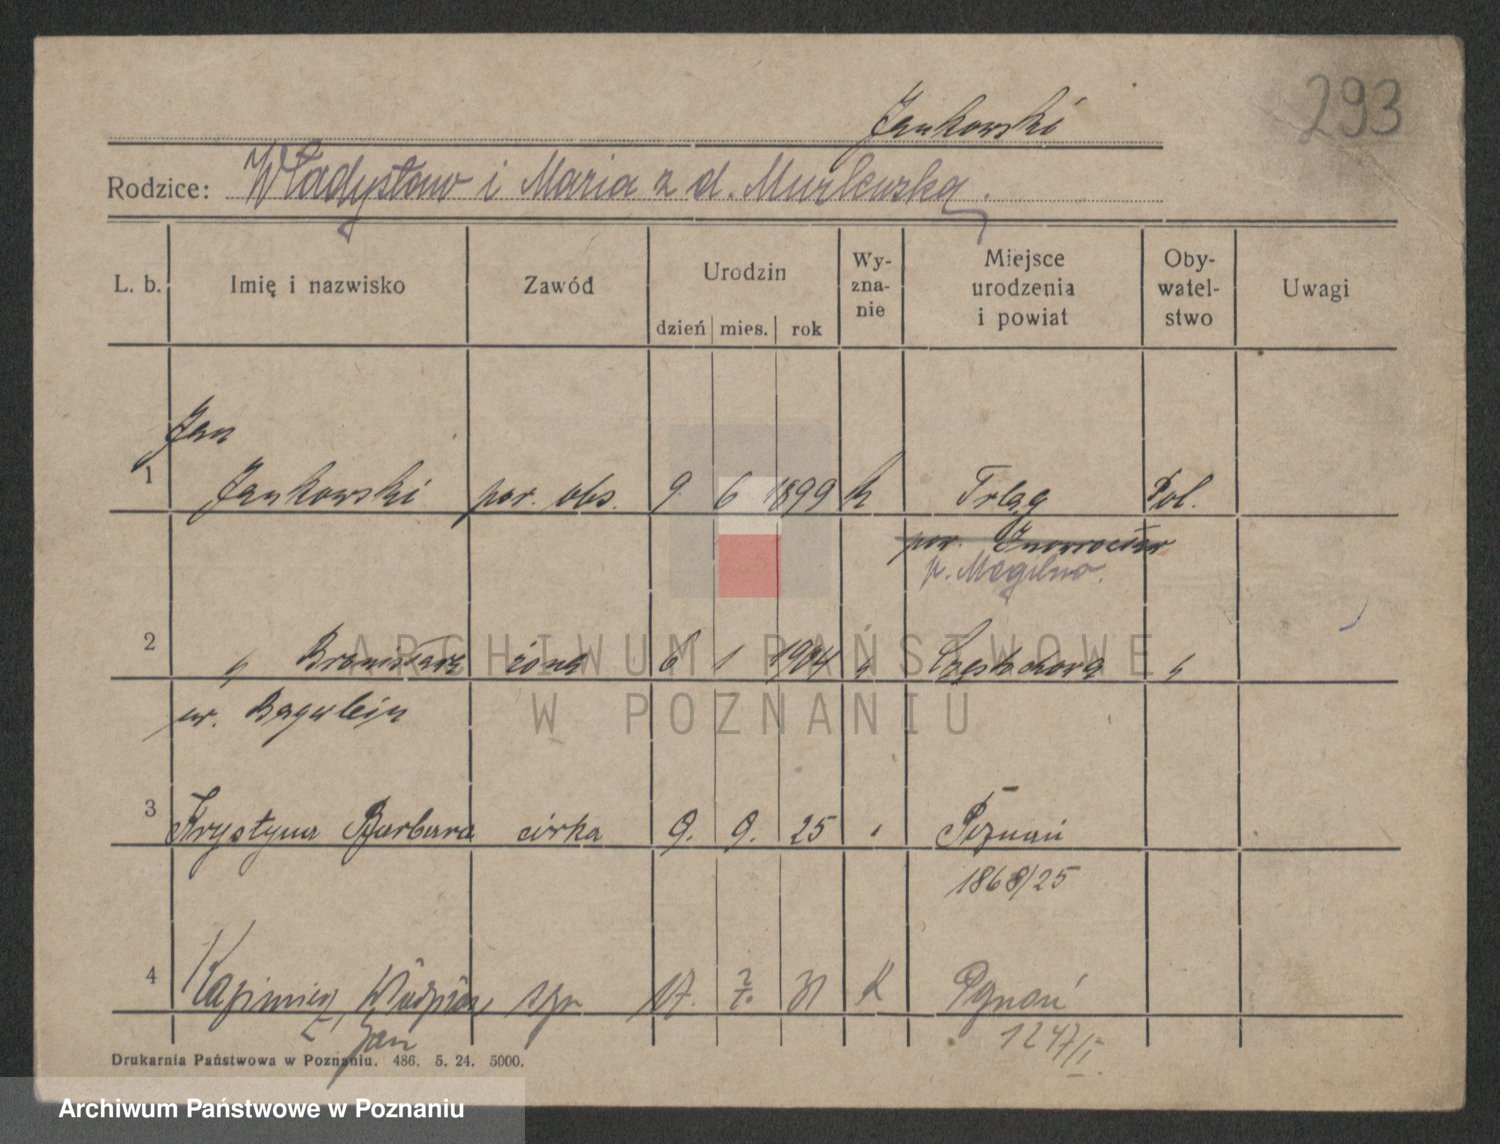 293
Jankowski
Rodzice: Władysław i Maria z d.
L. b. Imię i nazwisko Zawód Urodzin dzień mies. rok Wy-zna-nie Miejsce urodzenia i powiat Oby-watel-stwo Uwagi
Jan
1 Jankowski por. obs. 9. 6 1899 k Trląg Pol.
pow. Inowrocław
p. Mogilno.
2 " Bronisława żona 6 1 1904 " Częstochowa "
ur.
3 Krystyna Barbara córka 9. 9. 25 " Poznań
1868/25
4 Kazimierz, syn 17. 31 k Poznań
Jan
1247/I
Drukarnia Państwowa w Poznaniu. 486. 5. 24. 5000.
ARCHIWUM PAŃSTWOWE
W POZNANIU
Archiwum Państwowe w Poznaniu